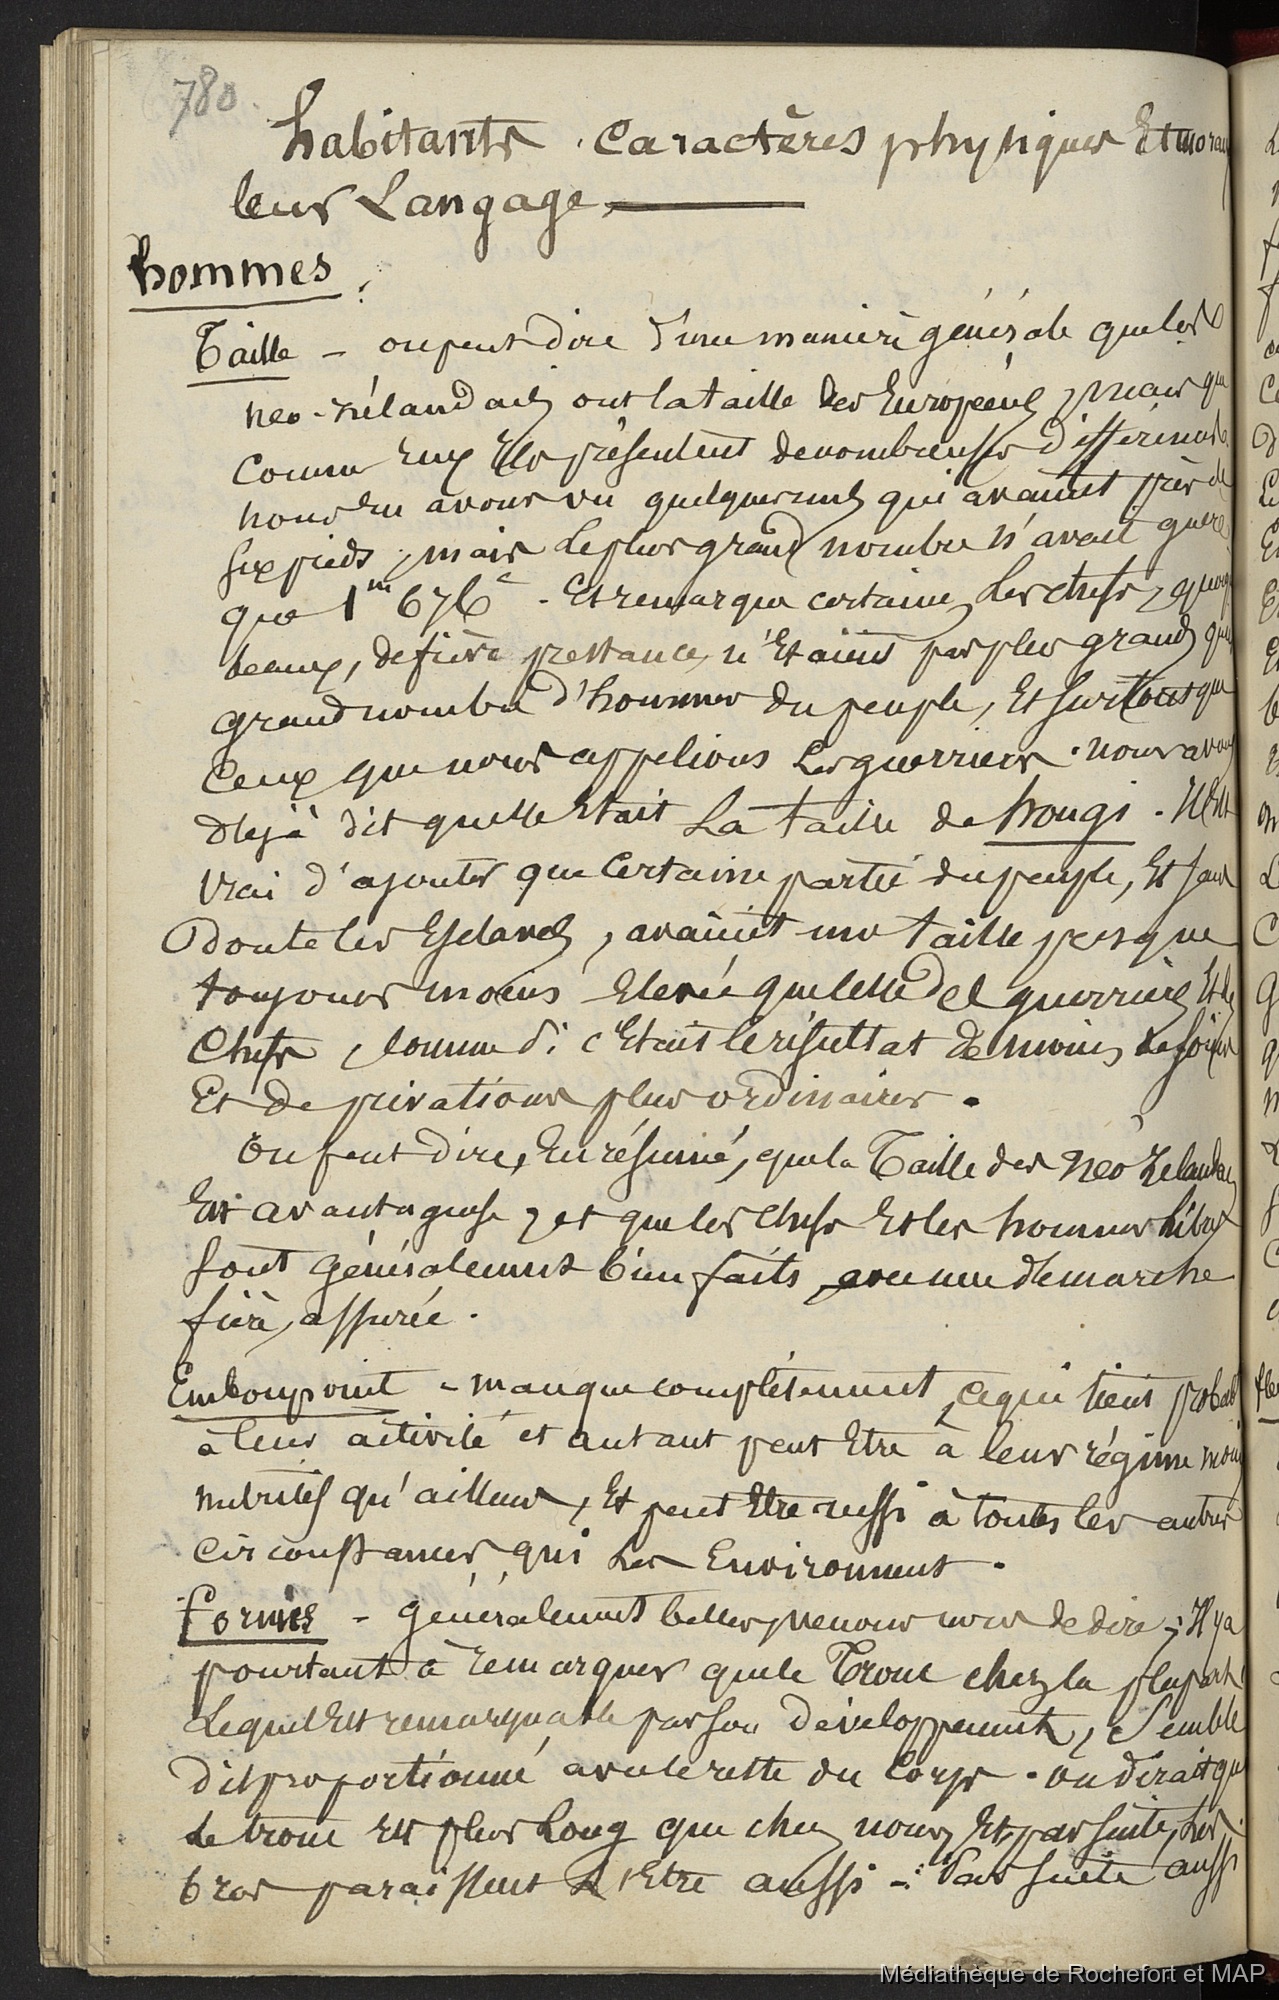 780
habitants. Caractères physiques Et moraux
leur Langage
hommes.
Taille — on peut dire d'une manière générale que les
neo-zélandais ont la taille des Européens, mais que
comme Eux Ils présentent de nombreuses différences.
nous En avons vu quelques uns qui avaient près de
six pieds, mais le plus grand nombre n'avait guère
que 1m 676. Et remarque certaine, les chefs, quoique
beaux, de fière prestance, n'Etaient pas plus grands que
grand nombre d'hommes du peuple, Et surtout que
Ceux que nous appelions Les guerriers. nous avons
déjà dit quelle Etait La taille de hougi. Il Est
vrai d'ajouter que Certaine partie du peuple, Et sans
doute les Esclaves, avaient une taille presque
toujours moins Elevée que celle des guerriers Et des
Chefs, comme si c'Etait le résultat de moins de soins
Et de privations plus ordinaires.
On peut dire, En résumé, que la Taille des Néo Zelandais
Est avantageuse, et que les chefs Et les hommes libres
sont généralement bien faits, avec une démarche
fière, assurée.
Embonpoint - manque complétement, ce qui tient probabt
à leur activité et autant peut Etre à leur régime moins
nutritif qu'ailleurs, Et peut Etre aussi à toutes les autres
circonstances qui Les Environnent.
formes - généralement belles, venons nous de dire; Il y a
pourtant à remarquer que le Tronc chez la plupart
Lequel Est remarquable par son développement, Semble
disproportionné avec le reste du Corps. on dirait que
le tronc Est plus Long que chez nous, Et par suite, Les
bras paraissent L'Etre aussi -: Par suite aussi
Médiathèque de Rochefort et MAP